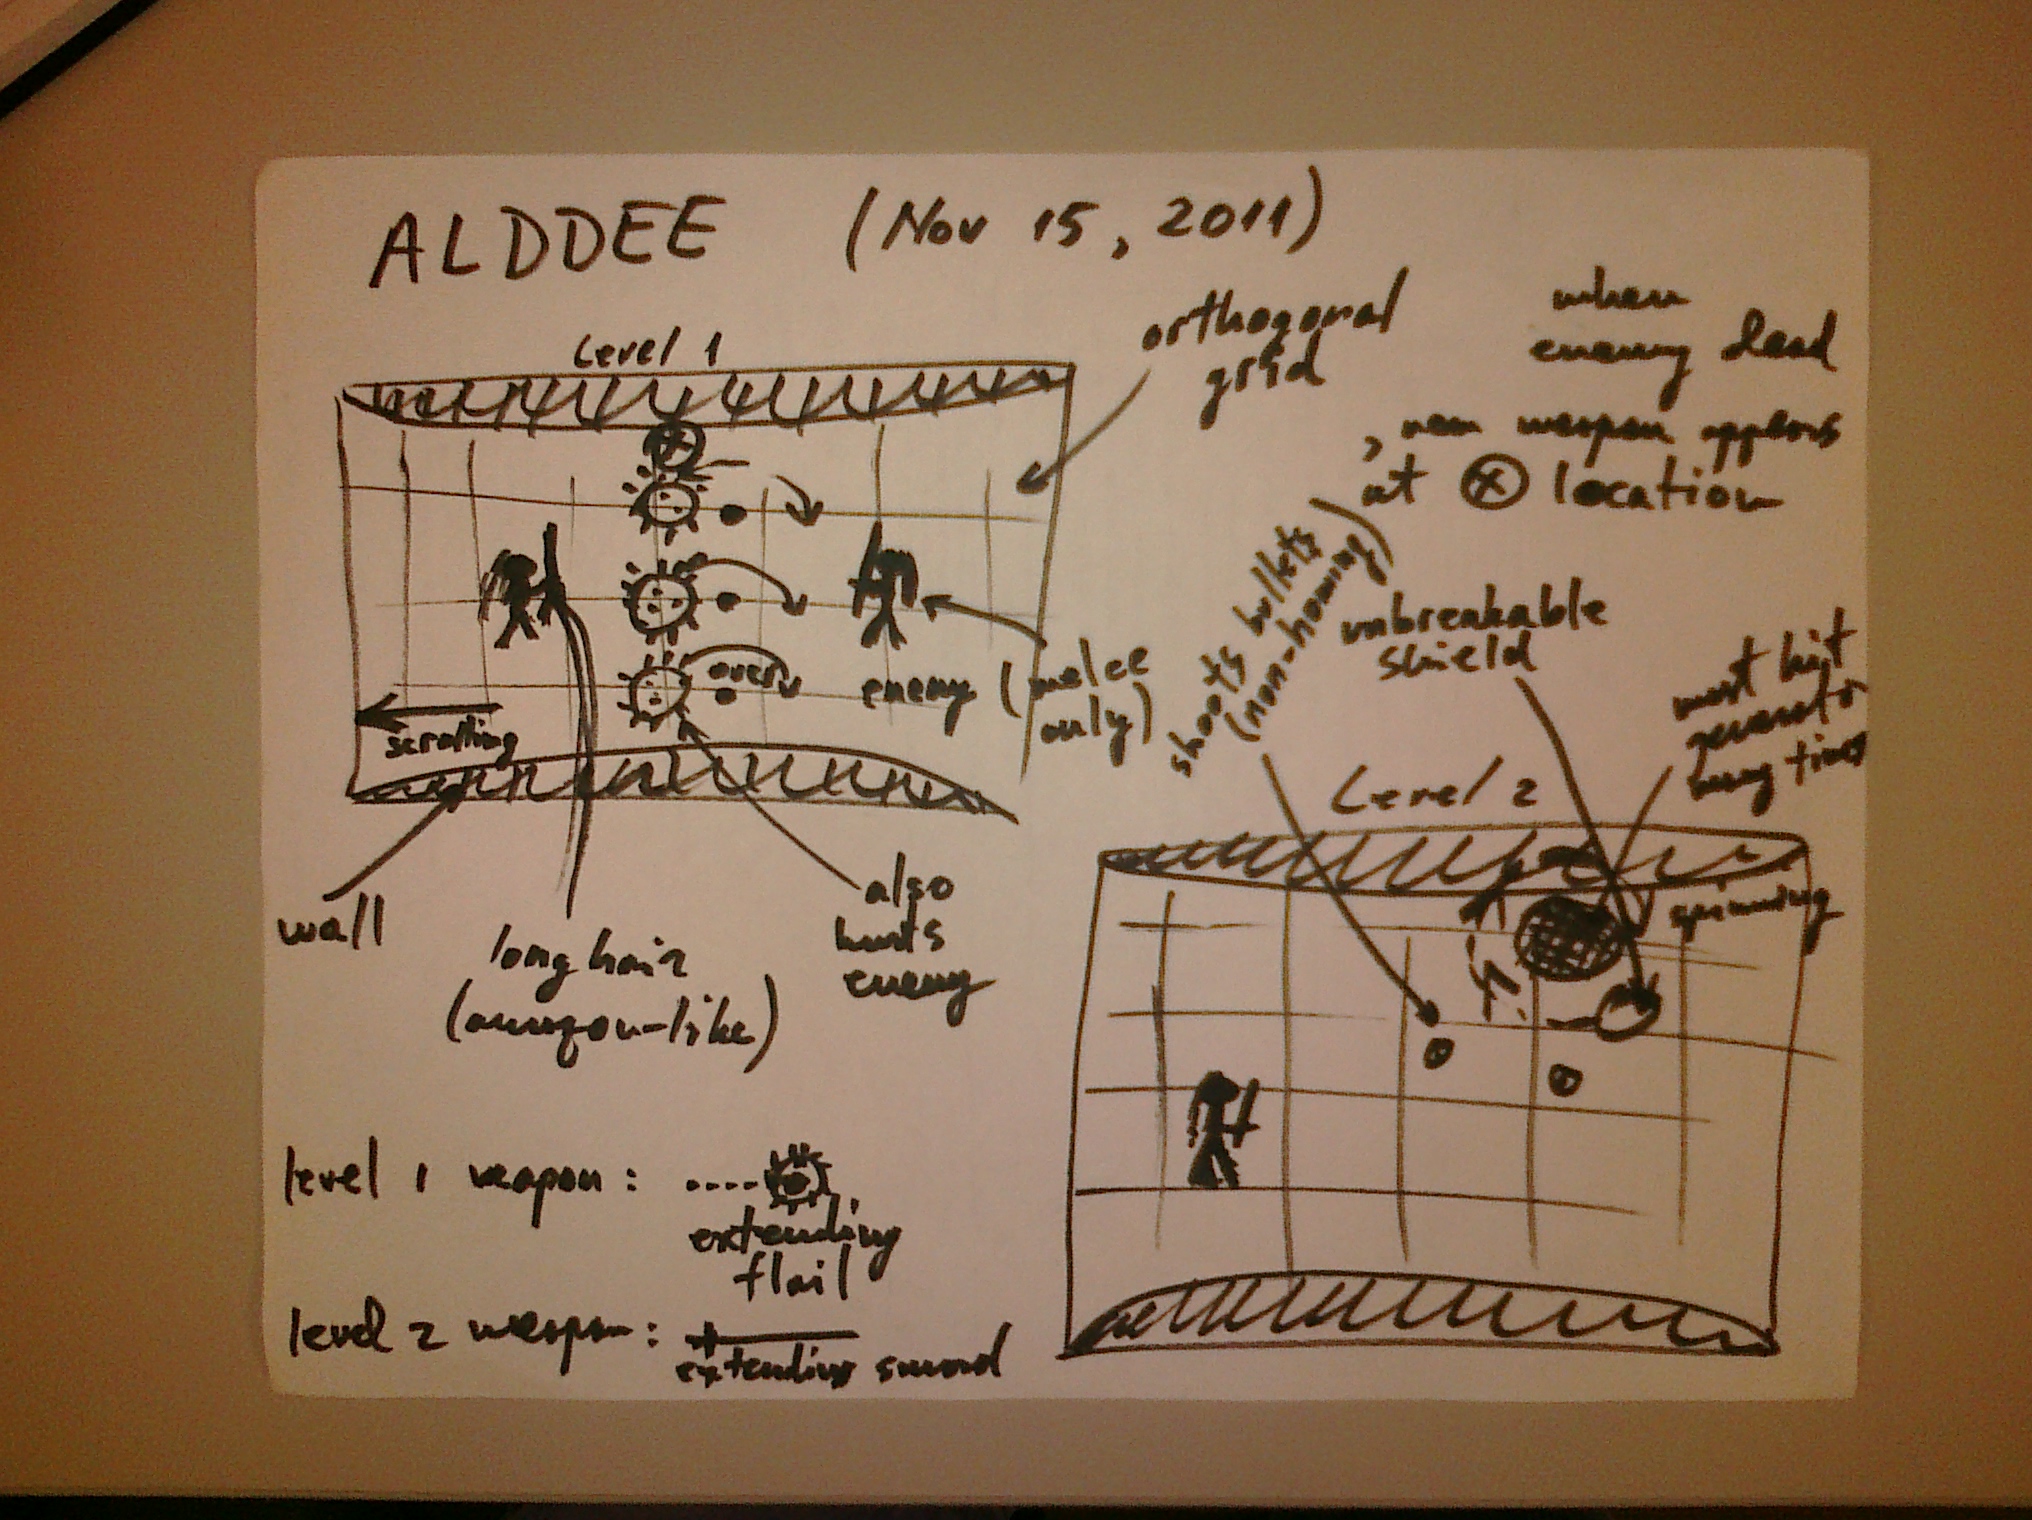 ALDDEE (Nov 15, 2011)
Level 1
orthogonal
grid
when
enemy dead
, new weapon appears
at ⊗ location
over
scrolling
enemy (melee
only)
wall
long hair
(amazon-like)
also
hurts
enemy
shoots bullets
(non-homing)
unbreakable
shield
must hit
many times
Level 2
spinning
level 1 weapon:
extending
flail
level 2 weapon:
extending sword